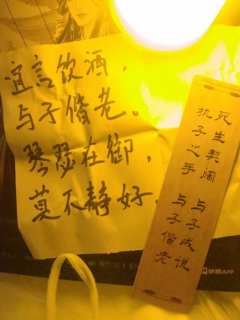 宜言饮酒，
与子偕老。
琴瑟在御，
莫不静好。
死生契阔 与子成说
执子之手 与子偕老